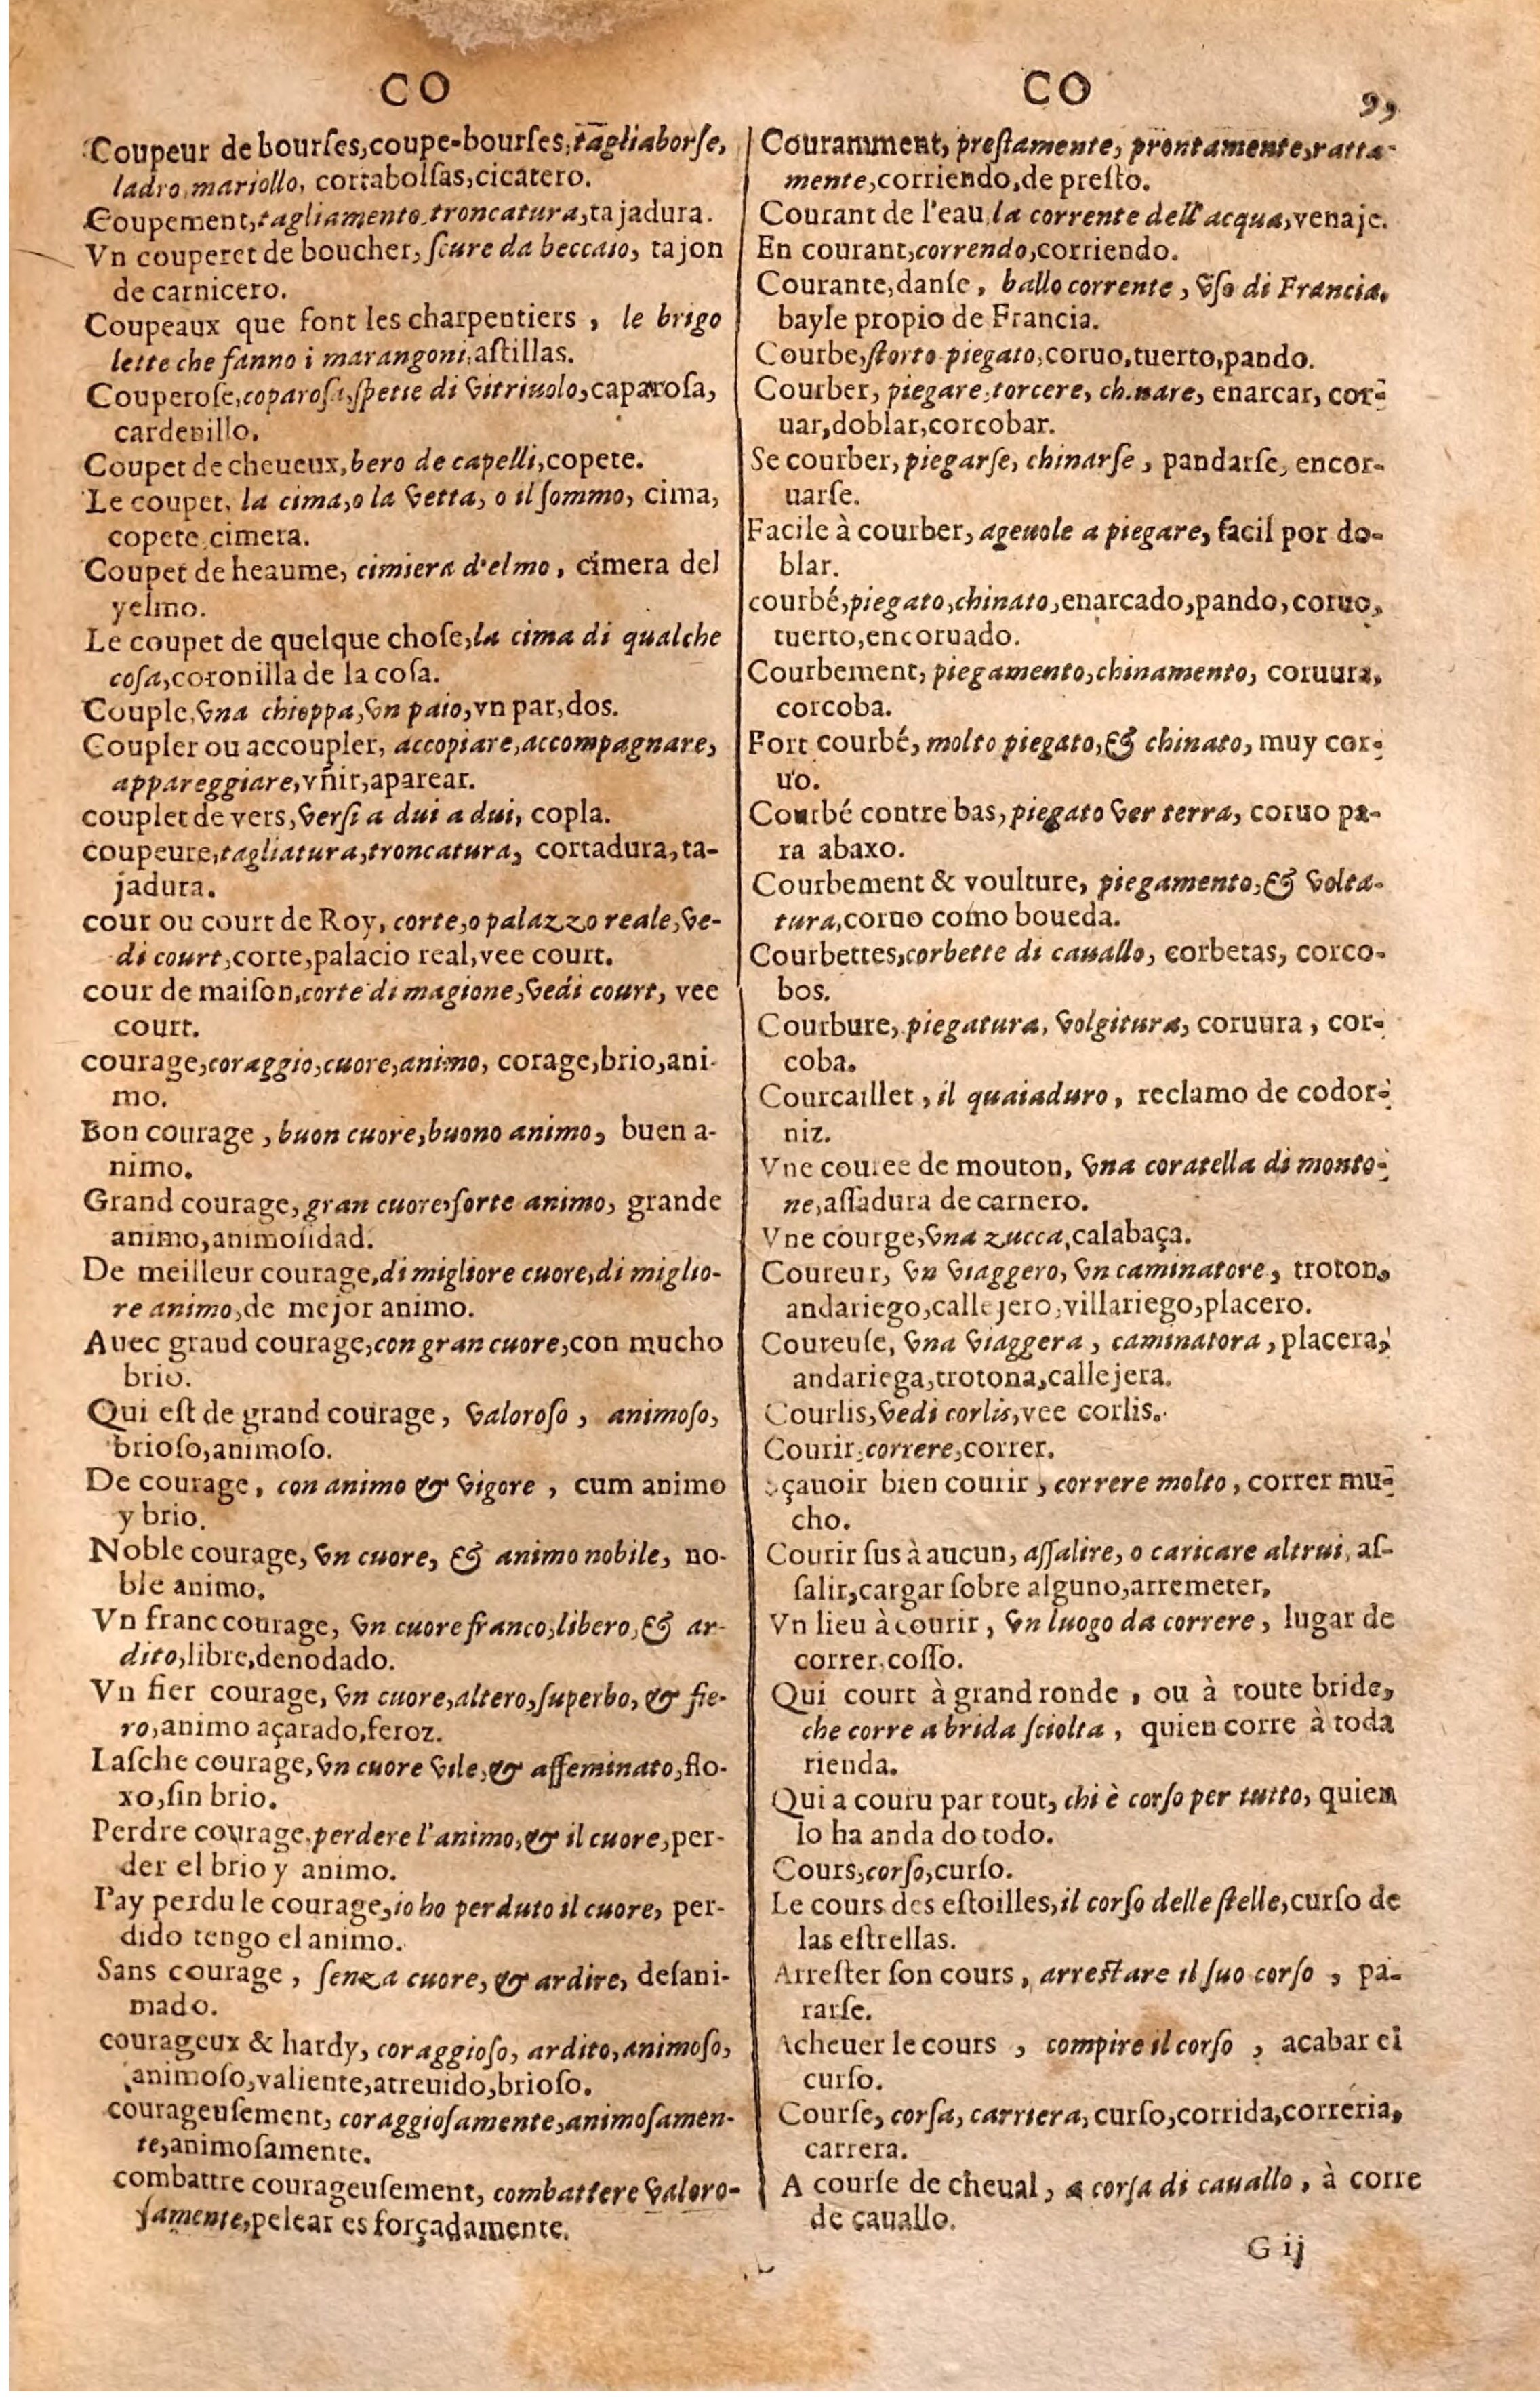 CO
Coupeur de bourſes,coupe-bourſes,tagliaborſe,
ladro,mariollo, cortabolſas,cicatero.
Coupement,tagliamento,troncatura,tajadura.
Vn couperet de boucher, ſcure da beccaio, tajon
de carnicero.
Coupeaux que font les charpentiers, le brigo
lette che fanno i marangoni,aſtillas.
Couperoſe,coparoſa,ſpetie di vitriuolo,caparoſa,
cardenillo.
Coupet de cheueux,bero de capelli,copete.
Le coupet, la cima,o la vetta, o il ſommo, cima,
copete,cimera.
Coupet de heaume, cimiera d'elmo, cimera del
yelmo.
Le coupet de quelque choſe,la cima di qualche
coſa,coronilla de la coſa.
Couple,vna chioppa,vn paio,vn par,dos.
Coupler ou accoupler, accopiare,accompagnare,
appareggiare,vñir,aparear.
couplet de vers,verſi a dui a dui, copla.
coupeure,tagliatura,troncatura, cortadura,ta-
jadura.
cour ou court de Roy, corte,o palazzo reale,ve-
di court,corte,palacio real,vee court.
cour de maiſon,corte di magione,vedi court, vee
court.
courage,coraggio,cuore,animo, corage,brio,ani-
mo.
Bon courage, buon cuore,buono animo, buen a-
nimo.
Grand courage, gran cuore,forte animo, grande
animo,animoſidad.
De meilleur courage,di migliore cuore,di miglio-
re animo,de mejor animo.
Auec grand courage,con gran cuore,con mucho
brio.
Qui eſt de grand courage, valoroſo, animoſo,
brioſo,animoſo.
De courage, con animo & vigore, cum animo
y brio.
Noble courage, vn cuore, & animo nobile, no-
ble animo.
Vn franc courage, vn cuore franco,libero,& ar-
dito,libre,denodado.
Vn fier courage, vn cuore,altero,ſuperbo, & fie-
ro,animo açarado,feroz.
Laſche courage,vn cuore vile,& affeminato,flo-
xo,ſin brio.
Perdre courage,perdere l'animo,& il cuore,per-
der el brio y animo.
I'ay perdu le courage,io ho perduto il cuore, per-
dido tengo el animo.
Sans courage, ſenza cuore, & ardire, deſani-
mado.
courageux & hardy, coraggioſo, ardito,animoſo,
animoſo,valiente,atreuido,brioſo.
courageuſement, coraggioſamente,animoſamen-
te,animoſamente.
combattre courageuſement, combattere valoro-
ſamente,pelear es forçadamente.
CO 99
Couramment, preſtamente, prontamente,ratta-
mente,corriendo,de preſto.
Courant de l'eau,la corrente dell'acqua,venaje.
En courant,correndo,corriendo.
Courante,danſe, ballo corrente, vſo di Francia,
bayle propio de Francia.
Courbe,ſtorto piegato,coruo,tuerto,pando.
Courber, piegare,torcere, chinare, enarcar, cor-
uar,doblar,corcobar.
Se courber, piegarſe, chinarſe, pandarſe, encor-
uarſe.
Facile à courber, ageuole a piegare, facil por do-
blar.
courbé,piegato,chinato,enarcado,pando,coruo,
tuerto,encoruado.
Courbement, piegamento,chinamento, coruura,
corcoba.
Fort courbé, molto piegato,& chinato, muy cor-
uo.
Courbé contre bas, piegato ver terra, coruo pa-
ra abaxo.
Courbement & voulture, piegamento,& volta-
tura,coruo como boueda.
Courbettes,corbette di cauallo, corbetas, corco-
bos.
Courbure, piegatura, volgitura, coruura, cor-
coba.
Courcaillet, il quaiaduro, reclamo de codor-
niz.
Vne couree de mouton, vna coratella di monto-
ne,aſſadura de carnero.
Vne courge,vna zucca,calabaça.
Coureur, vn viaggero, vn caminatore, troton,
andariego,callejero,villariego,placero.
Coureuſe, vna viaggera, caminatora, placera,
andariega,trotona,callejera.
Courlis,vedi corlis,vee corlis.
Courir,correre,correr.
Sçauoir bien courir, correre molto, correr mu-
cho.
Courir ſus à aucun, aſſalire, o caricare altrui, aſ-
ſalir,cargar ſobre alguno,arremeter.
Vn lieu à courir, vn luogo da correre, lugar de
correr,coſſo.
Qui court à grand ronde, ou à toute bride,
che corre a brida ſciolta, quien corre à toda
rienda.
Qui a couru par tout, chi è corſo per tutto, quien
lo ha anda do todo.
Cours,corſo,curſo.
Le cours des eſtoilles,il corſo delle ſtelle,curſo de
las eſtrellas.
Arreſter ſon cours, arreſtare il ſuo corſo, pa-
rarſe.
Acheuer le cours, compire il corſo, acabar el
curſo.
Courſe, corſa, carriera, curſo,corrida,correria,
carrera.
A courſe de cheual, a corſa di cauallo, à corre
de cauallo.
G ij